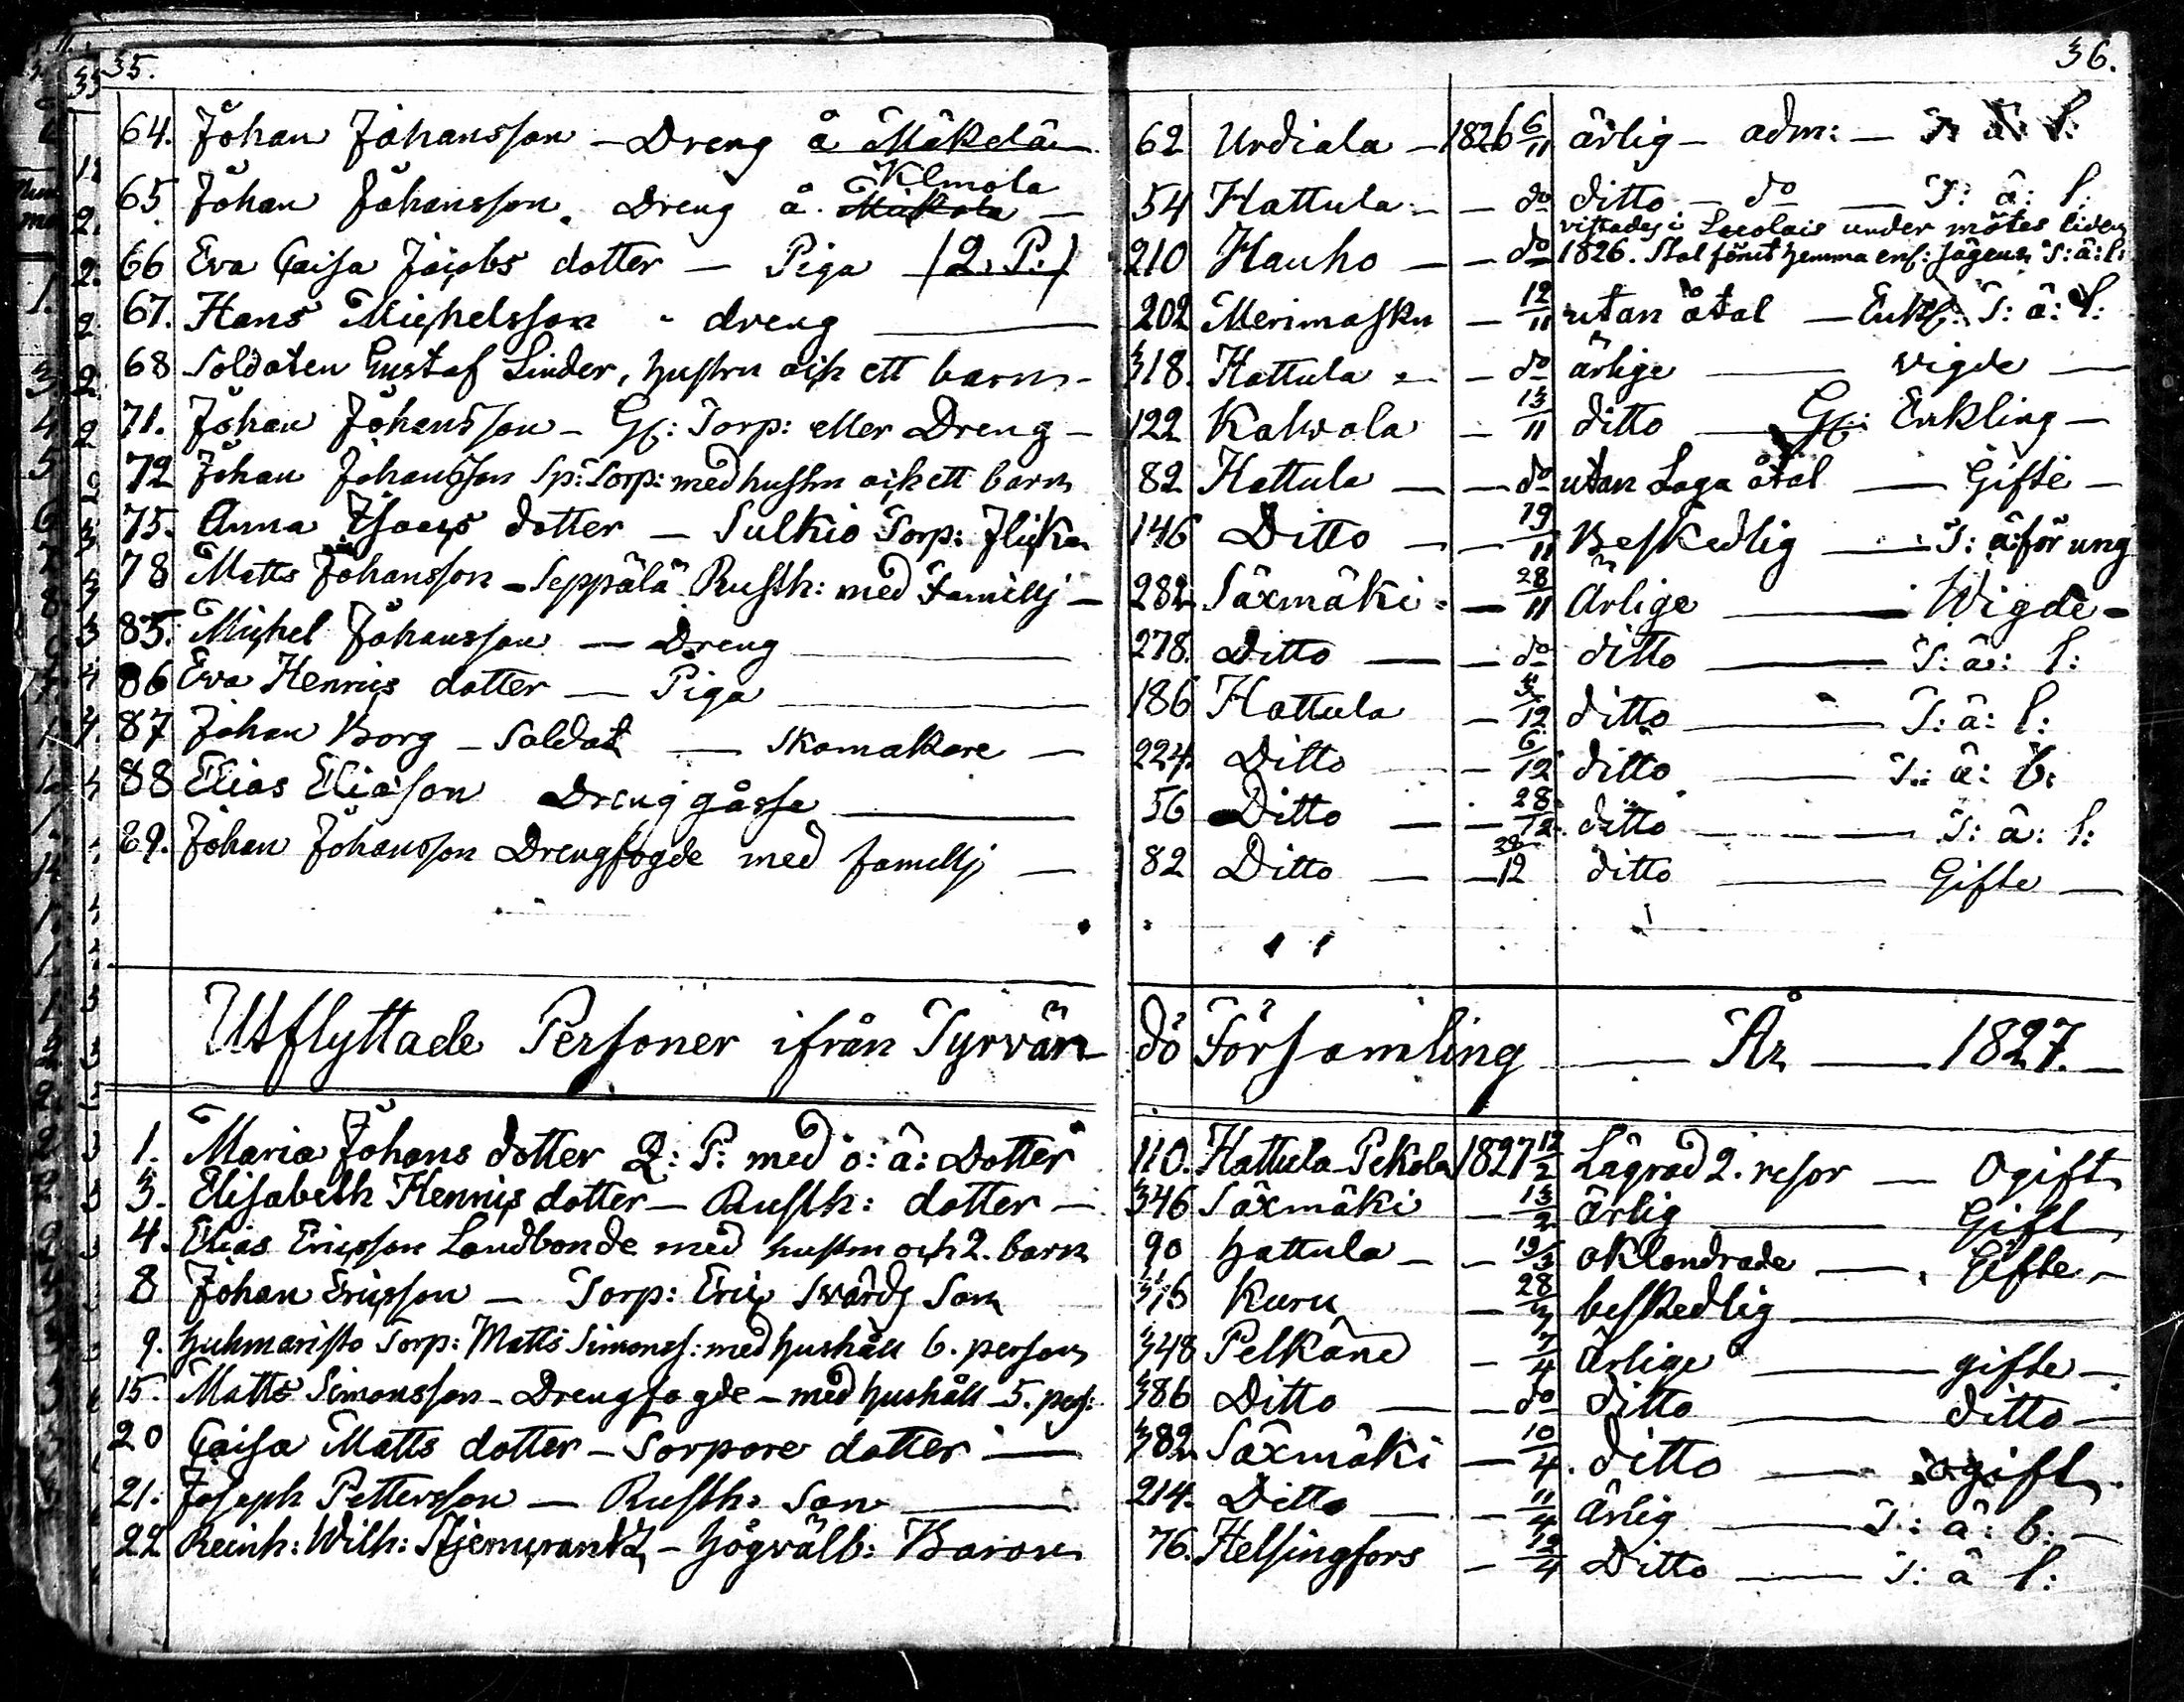 35.
36.
64. Johan Johansson - Dreng å Mäkelä 62 Urdiala - 1826 6/11 ärlig - adm: - T: ä: l:
Klmola
65 Johan Johansson. Dreng å. 54 Hattula - - do ditto - do - T: ä: l:
vistades i under mötes tiden
66 Eva Caisa Jacobs dotter - Piga (2. P:) 210 Hauho - - do 1826. Skal förut hemma T: ä: l:
67. Hans Michelsson - dreng 202 Merimasku - 12/11 utan åtal - Enkl: T: ä: l:
68 Soldaten Gustaf Linder, hustru och ett barn - 318. Hattula - - do ärlige - vigde -
71. Johan Johansson - Gl: Torp: eller Dreng - 122 Kalvola - 13/11 ditto - Enkling -
72 Johan Johansson Sp: Torp: med hustru och ett barn 82 Hattula - - do utan Laga åtal - Gifte -
75. Anna Isaacs dotter - Sulkio Torp: flicka 146 Ditto - - 19/11 Beskedlig - T: ä: för ung
78 Matts Johansson - Seppälä Rusth: med Famillj - 282 Säxmäki - - 28/11 Ärlige - Wigde -
85. Michel Johansson - Dreng 278. Ditto - - do ditto - T: ä: l:
86 Eva Henrics dotter - Piga 186 Hattula - 3/12 ditto - T: ä: l:
87 Johan Borg - Soldat - Skomakare - 224. Ditto - 6/12 ditto - T: ä: b:
88 Elias Eliason Drenggåsse 56 Ditto - - 28/12 ditto - T: ä: l:
89. Johan Johansson Drengfogde med famillj - 82 Ditto - - 12 ditto - Gifte -
Utflyttade Personer ifrån Tyrvän dö Församling - År - 1827. -
1. Maria Johans dotter Q: P: med o: ä: Dotter 110. Hattula Pekola 1827 12/2 Lägrad 2. resor - Ogift
3. Elisabeth Henrics dotter - Rusth: dotter - 346 Säxmäki - 13/2 ärlig - Gift
4. Elias Ericsson Landbonde med hustru och 2. barn 90 Hattula - - 19/3 oklandrade - Gifte -
8 Johan Ericsson - Torp: Eric Svärds Son Kuru - 28/3 beskedlig
9. Huhmaristo Torp: Matts Simonss: med hushåll 6. person 348 Pelkäne - 7/4 Ärlige - gifte -
15. Matts Simonsson - Drengfogde - med hushåll - 5. pers: 386 Ditto - - do ditto - ditto -
20 Caisa Matts dotter - Torpare dotter - 382 Säxmäki - 10/4. ditto - ogift
21. Joseph Pettersson - Rusth: Son 214. Ditto - - 11/4 Ärlig - T: ä: b: -
22 Reinh: Wilh: Stjerncrantz - Högvälb: Baron 76. Helsingfors - 12/4 Ditto - T: ä l: